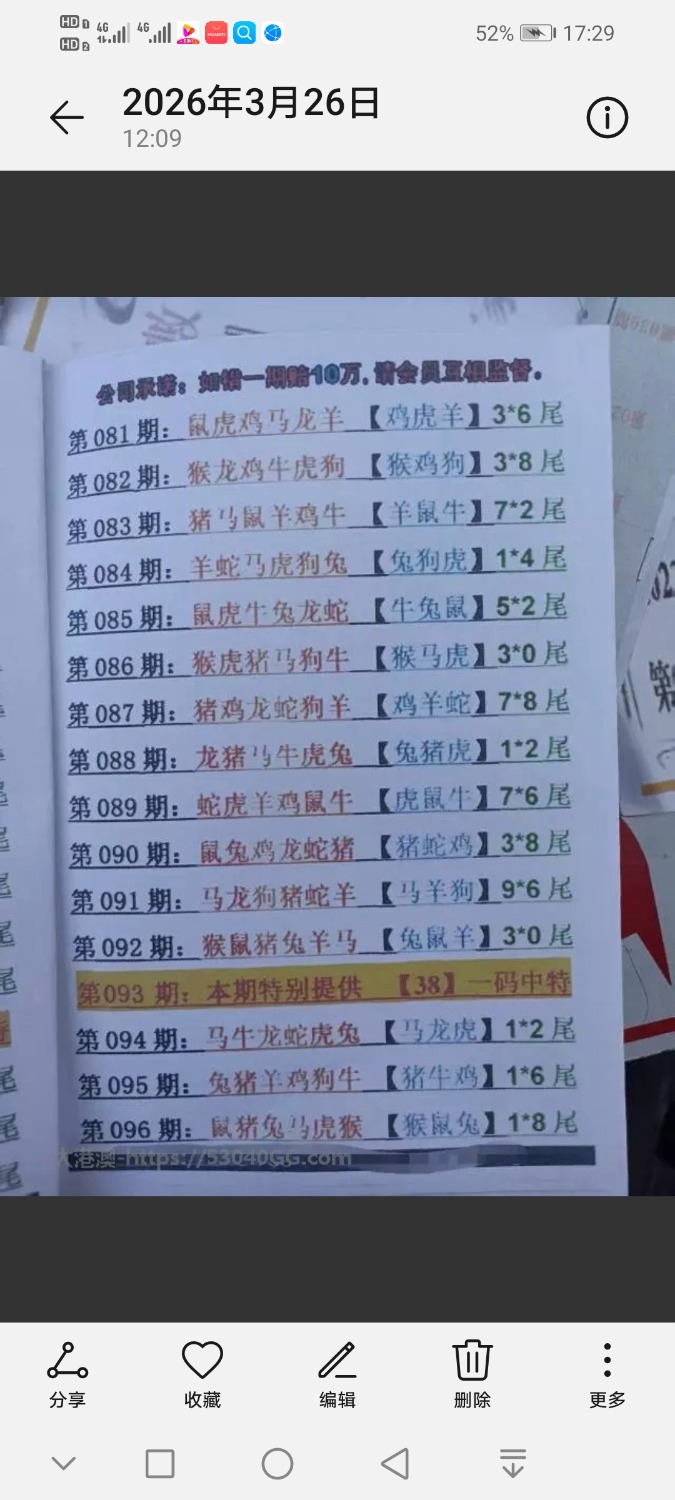 HD 1 4G 4G 52% 17:29
HD 2
2026年3月26日
12:09
公司承诺：如错一期赔10万，请会员互相监督。
第081期：鼠虎鸡马龙羊【鸡虎羊】3*6尾
第082期：猴龙鸡牛虎狗【猴鸡狗】3*8尾
第083期：猪马鼠羊鸡牛【羊鼠牛】7*2尾
第084期：羊蛇马虎狗兔【兔狗虎】1*4尾
第085期：鼠虎牛兔龙蛇【牛兔鼠】5*2尾
第086期：猴虎猪马狗牛【猴马虎】3*0尾
第087期：猪鸡龙蛇狗羊【鸡羊蛇】7*8尾
第088期：龙猪马牛虎兔【兔猪虎】1*2尾
第089期：蛇虎羊鸡鼠牛【虎鼠牛】7*6尾
第090期：鼠兔鸡龙蛇猪【猪蛇鸡】3*8尾
第091期：马龙狗猪蛇羊【马羊狗】9*6尾
第092期：猴鼠猪兔羊马【兔鼠羊】3*0尾
第093期：本期特别提供【38】一码中特
第094期：马牛龙蛇虎兔【马龙虎】1*2尾
第095期：兔猪羊鸡狗牛【猪牛鸡】1*6尾
第096期：鼠猪兔马虎猴【猴鼠兔】1*8尾
港澳-https://53040GG.com
分享 收藏 编辑 删除 更多